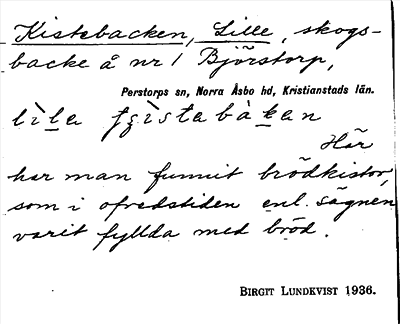 Kistebacken, Lille, skogs-
backe å nr 1 Björstorp,
Perstorps sn, Norra Åsbo hd, Kristianstads län.
lìla
Här
har man funnit brödkistor,
som i ofredstiden enl. sägnen
varit fyllda med bröd.
BIRGIT LUNDKVIST 1936.